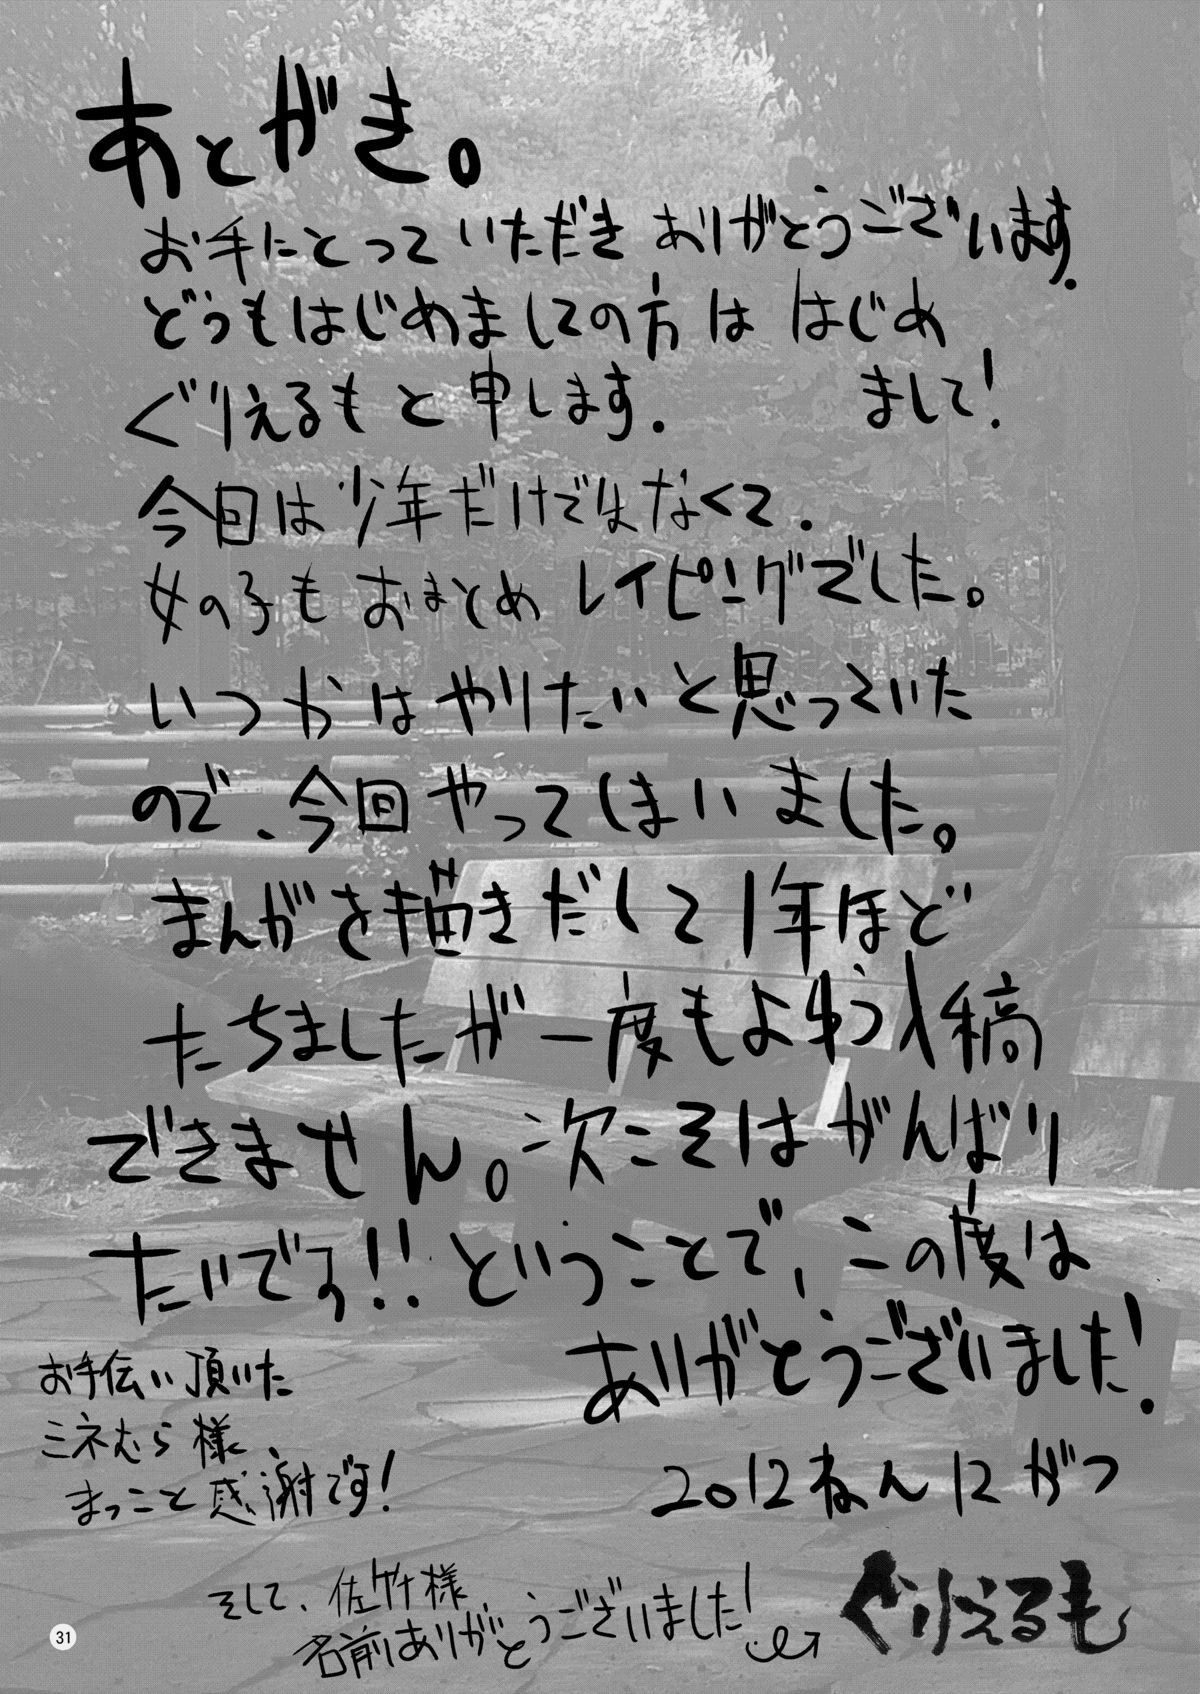 あとがき。
お手にとっていただき ありがとうございます.
どうもはじめましての方は はじめ
まして!
ぐりえるもと申します.
今回は少年だけではなくて.
女の子もおまとめレイピングでした。
いつかはやりたいと思っていた
ので、今回やってしまいました。
まんがを描きだして1年ほど
たちましたが一度もよゆう入稿
できません。次こそはがんばり
たいです!! ということで、この度は
ありがとうございました!
お手伝い頂いた
ミネむら様、
まっこと感謝です!
2012ねん12がつ
そして、佐竹様
名前ありがとうございました!
ぐりえるも
31